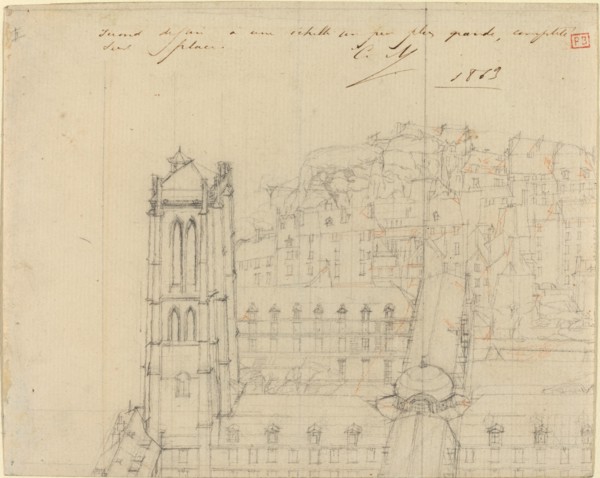 second dessin a une échelle un peu plus grande, complété
sur place. C. M
P.B
1863